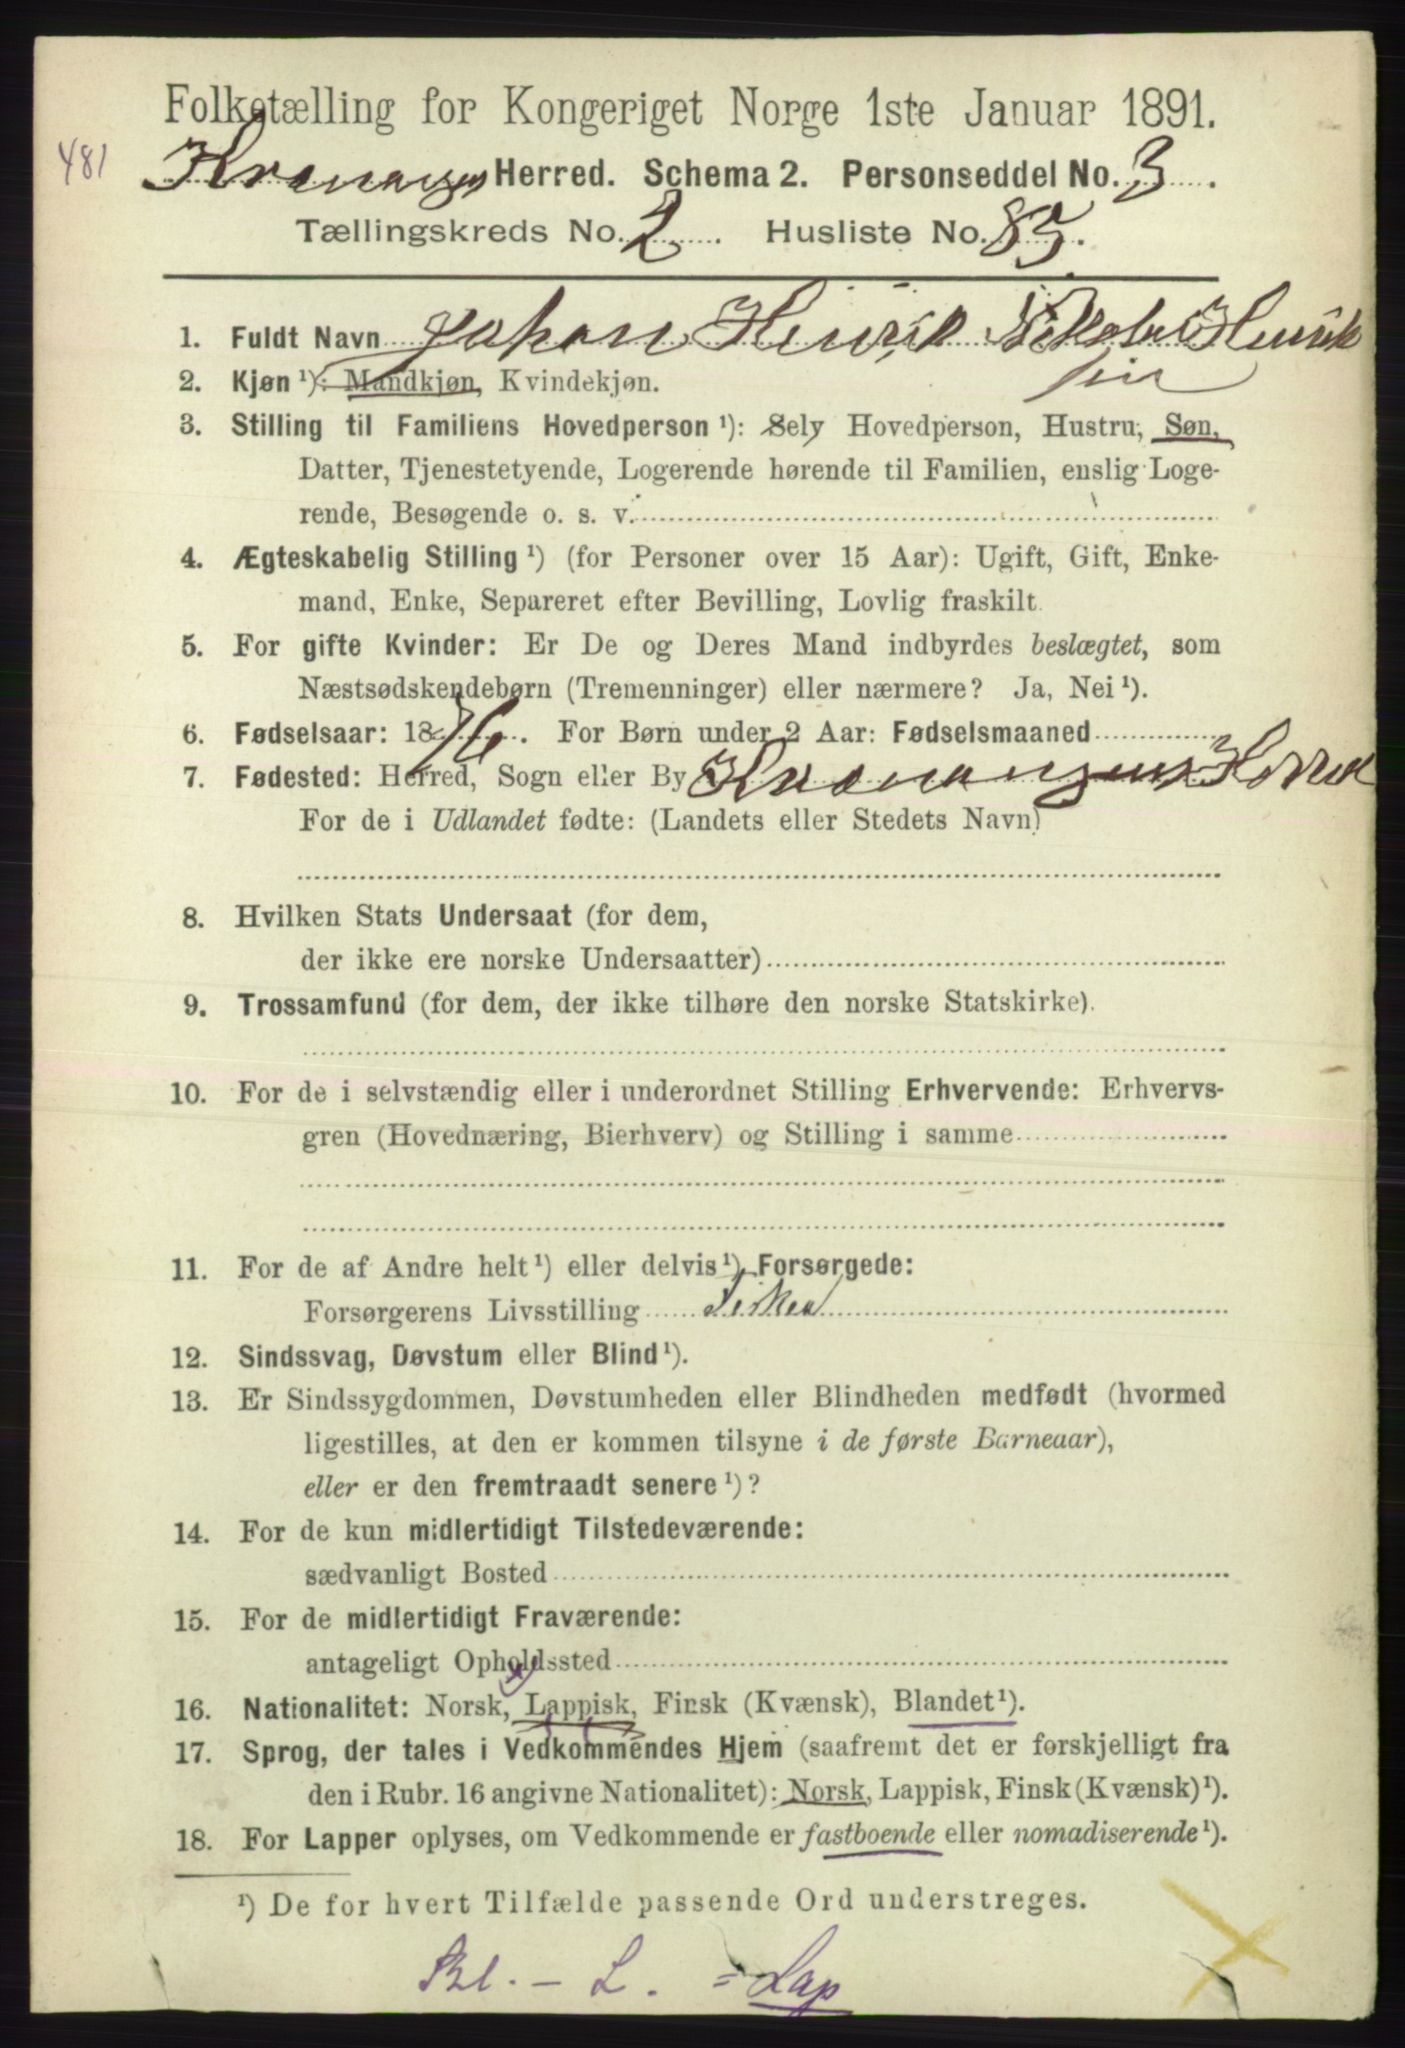 Folketælling for Kongeriget Norge 1ste Januar 1891.
481
Herred. Schema 2. Personseddel No. 3.
Tællingskreds No. 2. Husliste No. 85.
1. Fuldt Navn Johan Henrik Nikolai Henrik
sen
2. Kjøn ¹): Mandkjøn, Kvindekjøn.
3. Stilling til Familiens Hovedperson ¹): Selv Hovedperson, Hustru, Søn,
Datter, Tjenestetyende, Logerende hørende til Familien, enslig Loge-
rende, Besøgende o. s. v.
4. Ægteskabelig Stilling ¹) (for Personer over 15 Aar): Ugift, Gift, Enke-
mand, Enke, Separeret efter Bevilling, Lovlig fraskilt.
5. For gifte Kvinder: Er De og Deres Mand indbyrdes beslægtet, som
Næstsødskendebørn (Tremenninger) eller nærmere? Ja, Nei ¹).
6. Fødselsaar: 1876. For Børn under 2 Aar: Fødselsmaaned
7. Fødested: Herred, Sogn eller By Kvænangens Herred
For de i Udlandet fødte: (Landets eller Stedets Navn)
8. Hvilken Stats Undersaat (for dem,
der ikke ere norske Undersaatter)
9. Trossamfund (for dem, der ikke tilhøre den norske Statskirke).
10. For de i selvstændig eller i underordnet Stilling Erhvervende: Erhvervs-
gren (Hovednæring, Bierhverv) og Stilling i samme
11. For de af Andre helt ¹) eller delvis ¹) Forsørgede:
Forsørgerens Livsstilling Fisker
12. Sindssvag, Døvstum eller Blind ¹).
13. Er Sindssygdommen, Døvstumheden eller Blindheden medfødt (hvormed
ligestilles, at den er kommen tilsyne i de første Barneaar),
eller er den fremtraadt senere ¹)?
14. For de kun midlertidigt Tilstedeværende:
sædvanligt Bosted
15. For de midlertidigt Fraværende:
antageligt Opholdssted
16. Nationalitet: Norsk, Lappisk, Finsk (Kvænsk), Blandet ¹).
17. Sprog, der tales i Vedkommendes Hjem (saafremt det er forskjelligt fra
den i Rubr. 16 angivne Nationalitet): Norsk, Lappisk, Finsk (Kvænsk) ¹).
18. For Lapper oplyses, om Vedkommende er fastboende eller nomadiserende ¹).
¹) De for hvert Tilfælde passende Ord understreges.
Bl. – L. = Lap